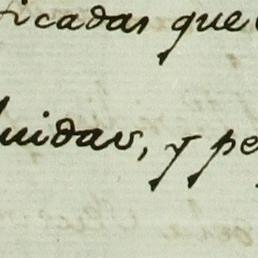 ficadas que
luidas, y pe